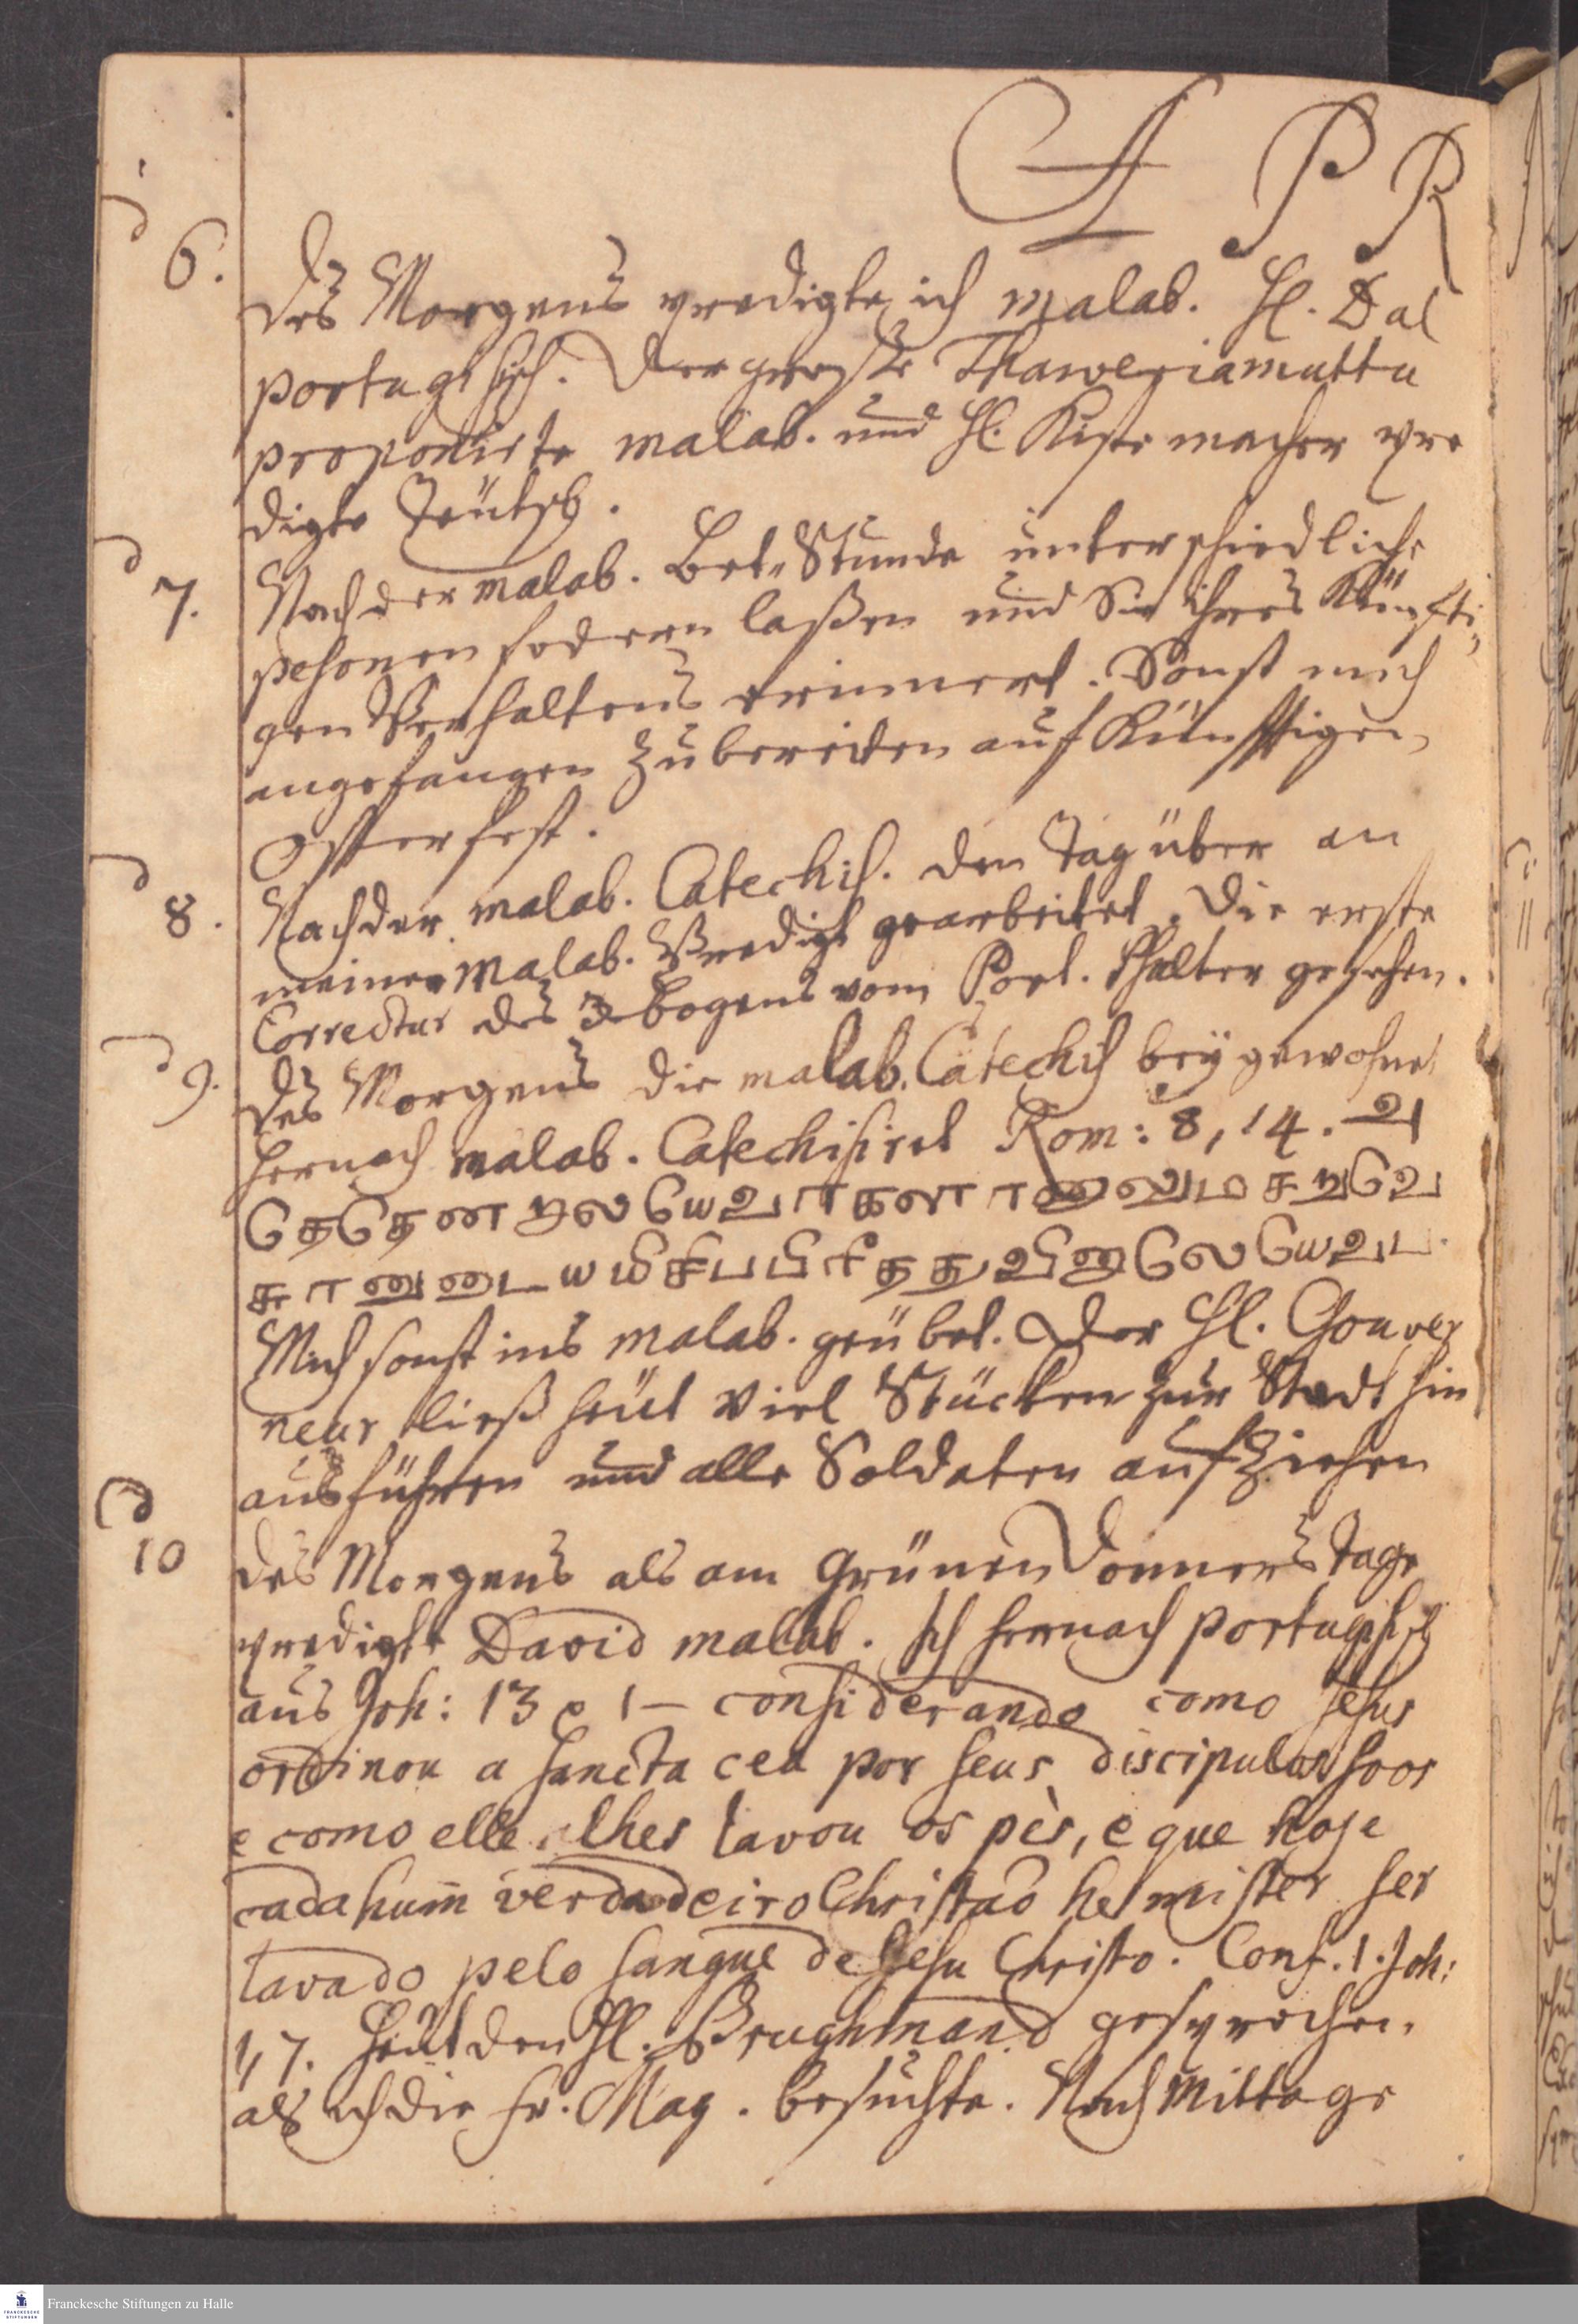 A P R
6. Des Morgens predigte ich malab. Hl. Dal
portugisisch. Der Thaweriamuttu
proponirte malab. und Hl. Kistemacher pre
digte Teütsch.
7. Nach der malab. Bet-Stunde unterschiedliche
pesonen fodern laßen und Sie ihres Künfti-
gen Verhaltens erinnert. Sonst mich
angefangen zubereiten auf Künfftigen
Osterfest.
8. Nach der malab. Catechis. den Tag über an
meiner malab. Predigt gearbeitet. Die erste
Correctur des Bogens vom Port. Psalter gesehen.
9. Des Morgens die malab. Catechis beygewohnet
hernach malab. Catechisiret Rom: 8, 14.
Mich sonst ins malab. geübet. Der Hl. Gouver
neur ließ heüt Viel Stücken zur Stadt hin
ausführen und alle Soldaten aufziehen
10 Des Morgens als am Grünen Donnerstage
predigte David malab. Ich hernach portugisisch
aus Joh: 13 1 – considerando como Jesus
ordinou a sancta cea por seus discipulos
e como elle lhes lavou os pès, e que hoje
cada hum verdadeiro Christaõ he mister ser
lavado pelo sangue de Jesu Christo. Conf. 1. Joh:
1, 7. Heüt den Hl. Brughmand gesprochen,
als ich die Fr. Mag. besuchte. Nach Mittage
Franckesche Stiftungen zu Halle